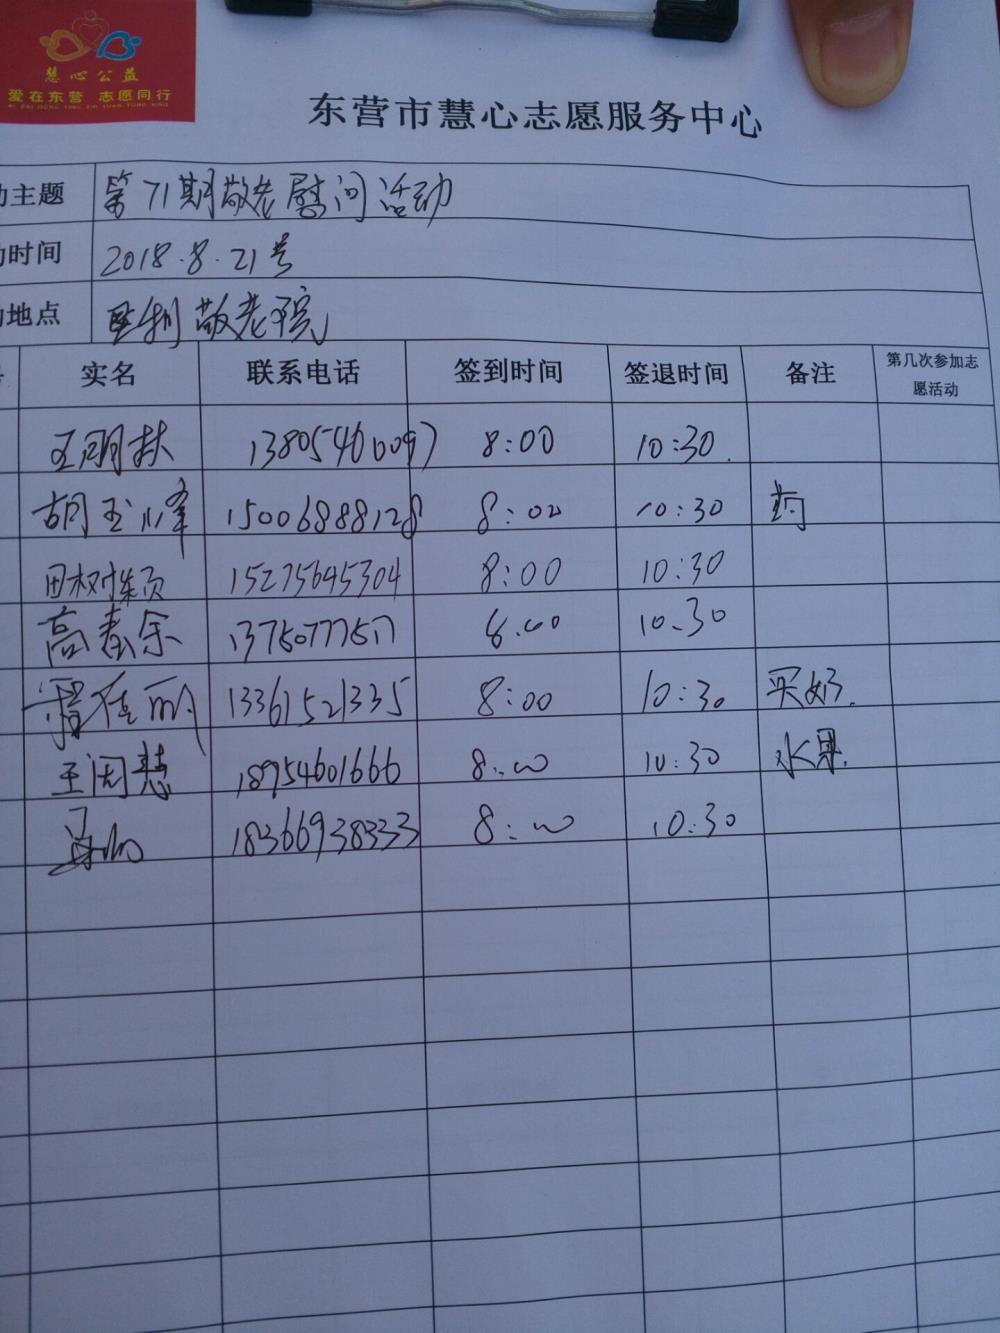 慧心公益
爱在东营 志愿同行
东营市慧心志愿服务中心
动主题 第71期敬老慰问活动
动时间 2018.8.21号
动地点 垦利敬老院
实名 联系电话 签到时间 签退时间 备注 第几次参加志愿活动
13805460097 8:00 10:30.
胡玉峰 15006888128 8:00 10:30 药
田树 15275645304 8:00 10:30
高春余 8.00 10.30
13361521335 8:00 10:30 买奶.
王闰慧 18954601666 8:00 10:30 水果.
18366938333 8:00 10:30